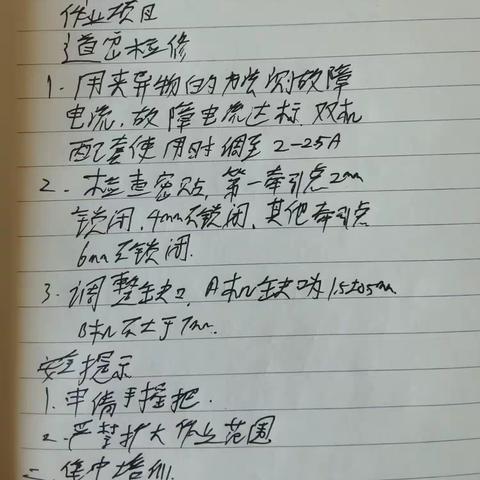 作业项目
道岔检修
1. 用夹异物的方法测故障
电流,故障电流达标,双机
配套使用时调至2-2.5A
2. 检查密贴,第一牵引点2mm
锁闭,4mm不锁闭,其他牵引点
6mm不锁闭.
3. 调整缺口,A机缺口为1.5±0.5mm
B机不大于7mm.
安全提示
1. 申请手摇把.
2. 严禁扩大作业范围
二. 集中培训.